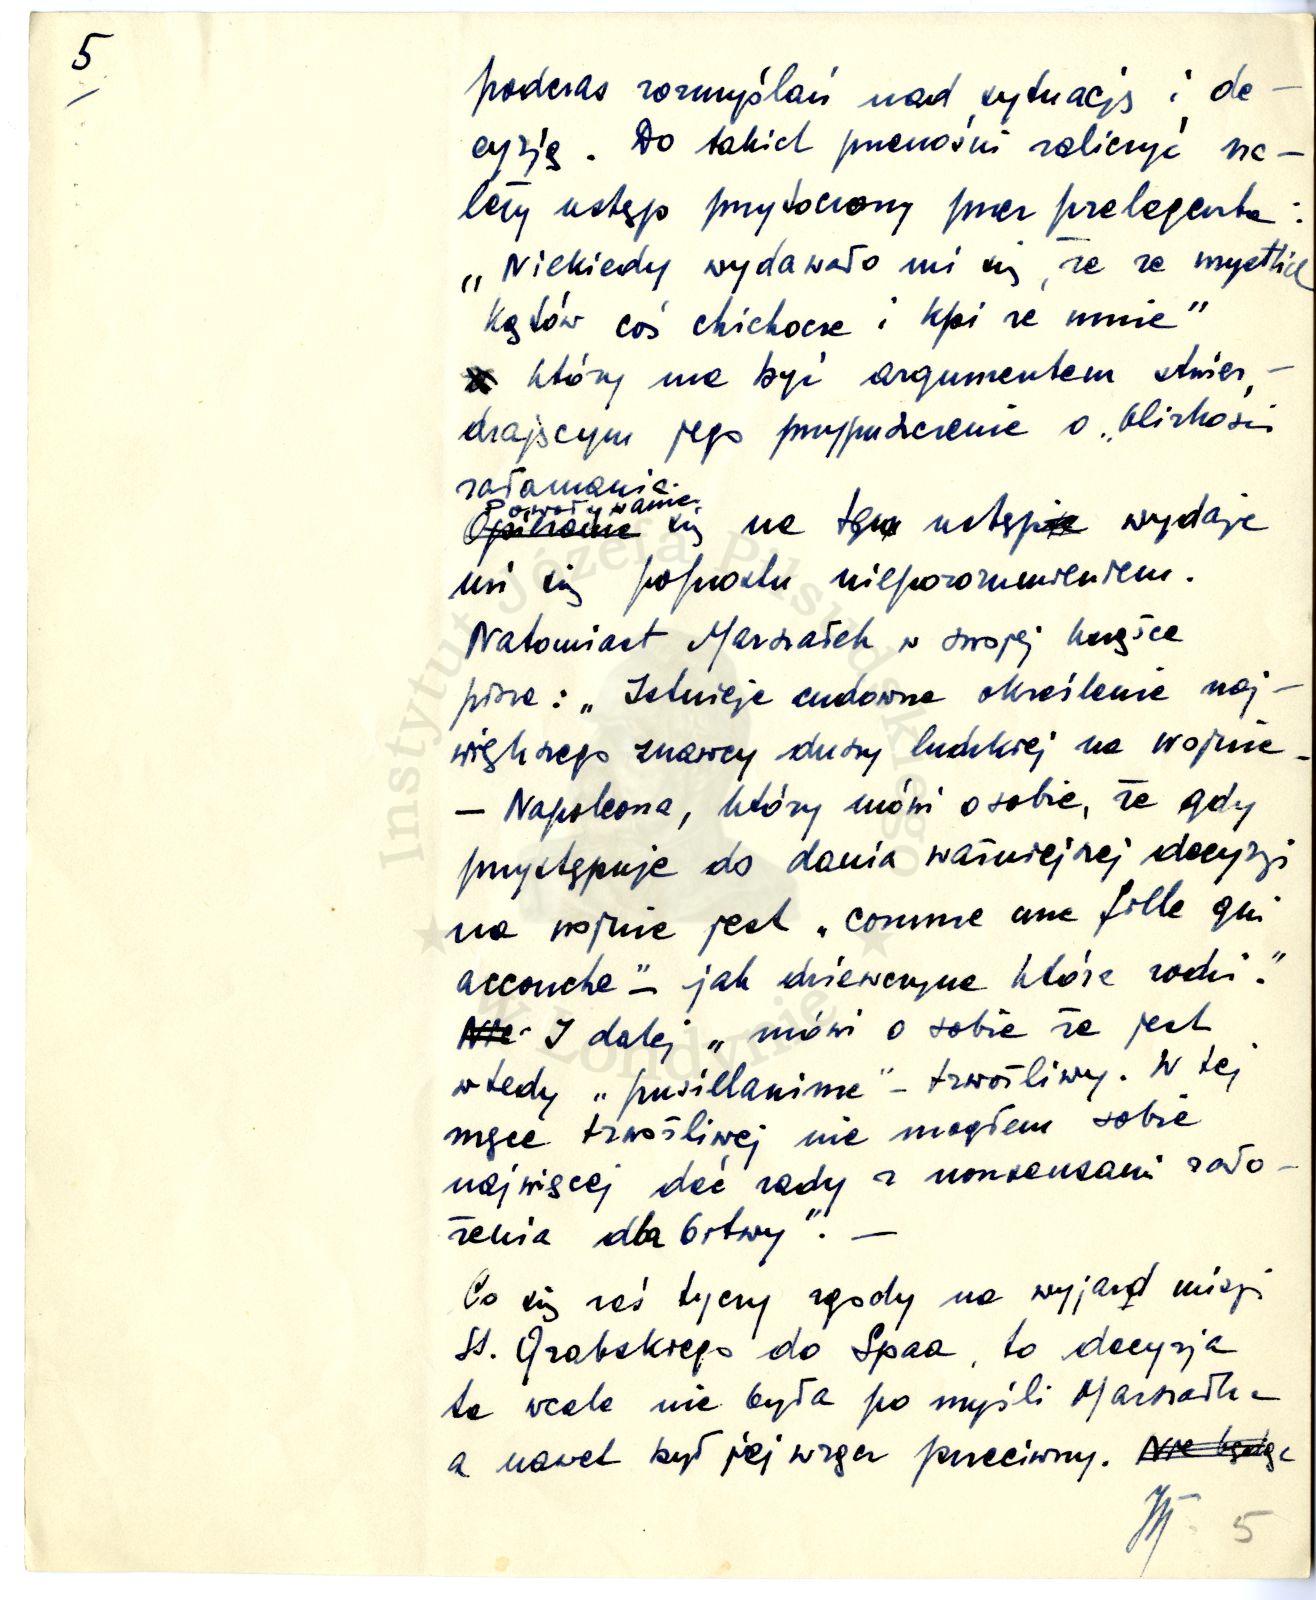 5
podczas rozmyślań nad sytuacją i de-
cyzją. Do takich przenośni zaliczyć na-
leży ustęp przytoczony przez prelegenta:
„Niekiedy wydawało mi się, że ze wszystkich
kątów coś chichocze i kpi ze mnie"
który ma być argumentem stwier-
dzającym jego przypuszczenie o „bliskości
załamania.
Powoływanie
Opieranie się na ten ustęp wydaje
mi się poprostu nieporozumieniem.
Natomiast Marszałek w swojej książce
pisze: „Istnieje cudowne określenie naj-
większego znawcy duszy ludzkiej na wojnie -
- Napoleona, który mówi o sobie, że gdy
przystępuje do dania ważniejszej decyzji
na wojnie jest „comme une fille qui
accouche" - jak dziewczyna która rodzi."
Nie I dalej „mówi o sobie że jest
wtedy „pusillanime" - trwożliwy. W tej
męce trwożliwej nie mogłem sobie
najwięcej dać rady z nonsensami zało-
żenia dla bitwy". -
Co się zaś tyczy zgody na wyjazd misji
St. Grabskiego do Spaa, to decyzja
ta wcale nie była po myśli Marszałka
a nawet był jej wręcz przeciwny. Nie będąc
5
Instytut Józefa Piłsudskiego
w Londynie